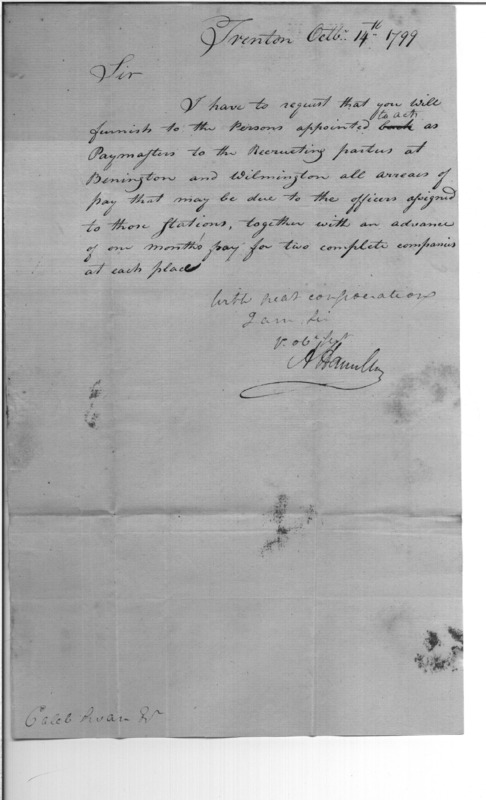 Trenton Octbr. 14th. 1799
Sir
I have to request that you will
furnish to the Persons appointed to act as
Paymasters to the Recruiting parties at
Benington and Wilmington all arrears of
pay that may be due to the officers assigned
to those Stations, together with an advance
of one month's pay for two complete companies
at each place
With great consideration
I am Sir
Yr. obt. Servt
A Hamilton
Caleb Swan Esr